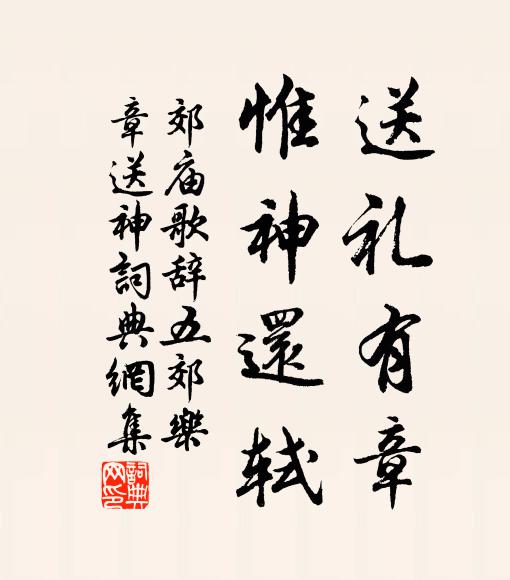 送礼有章
惟神還軾
郊庙歌辞五郊樂
章送神詞典網集
詞典
网印